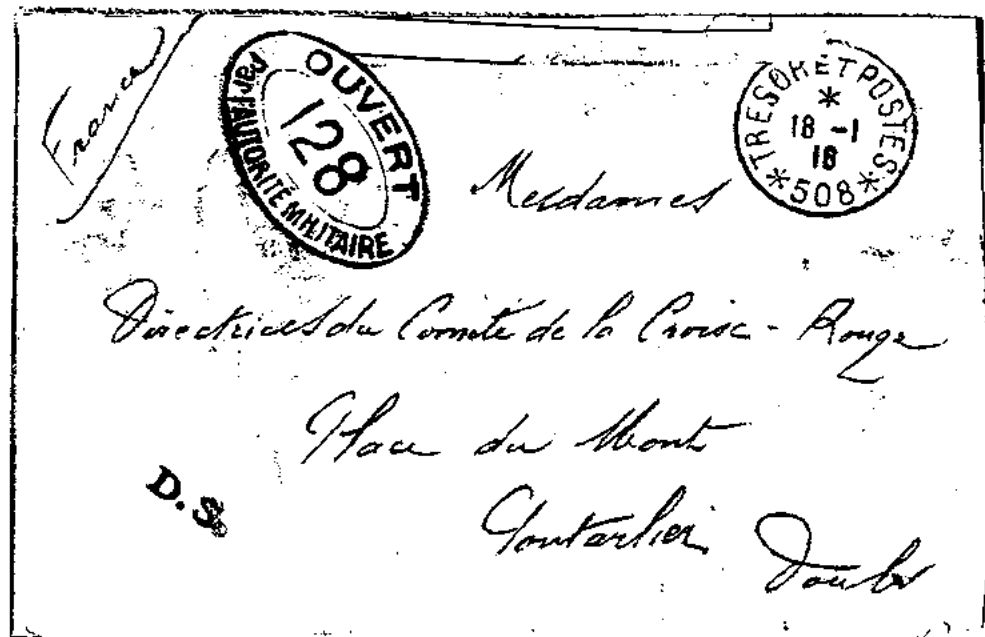 France
OUVERT
128
Par l'AUTORITÉ MILITAIRE
TRESOR ET POSTES
*
18 -1
16
*508*
Mesdames
Directrices du Comité de la Croix-Rouge
Place du Mont
D.S.
Pontarlier
Doubs